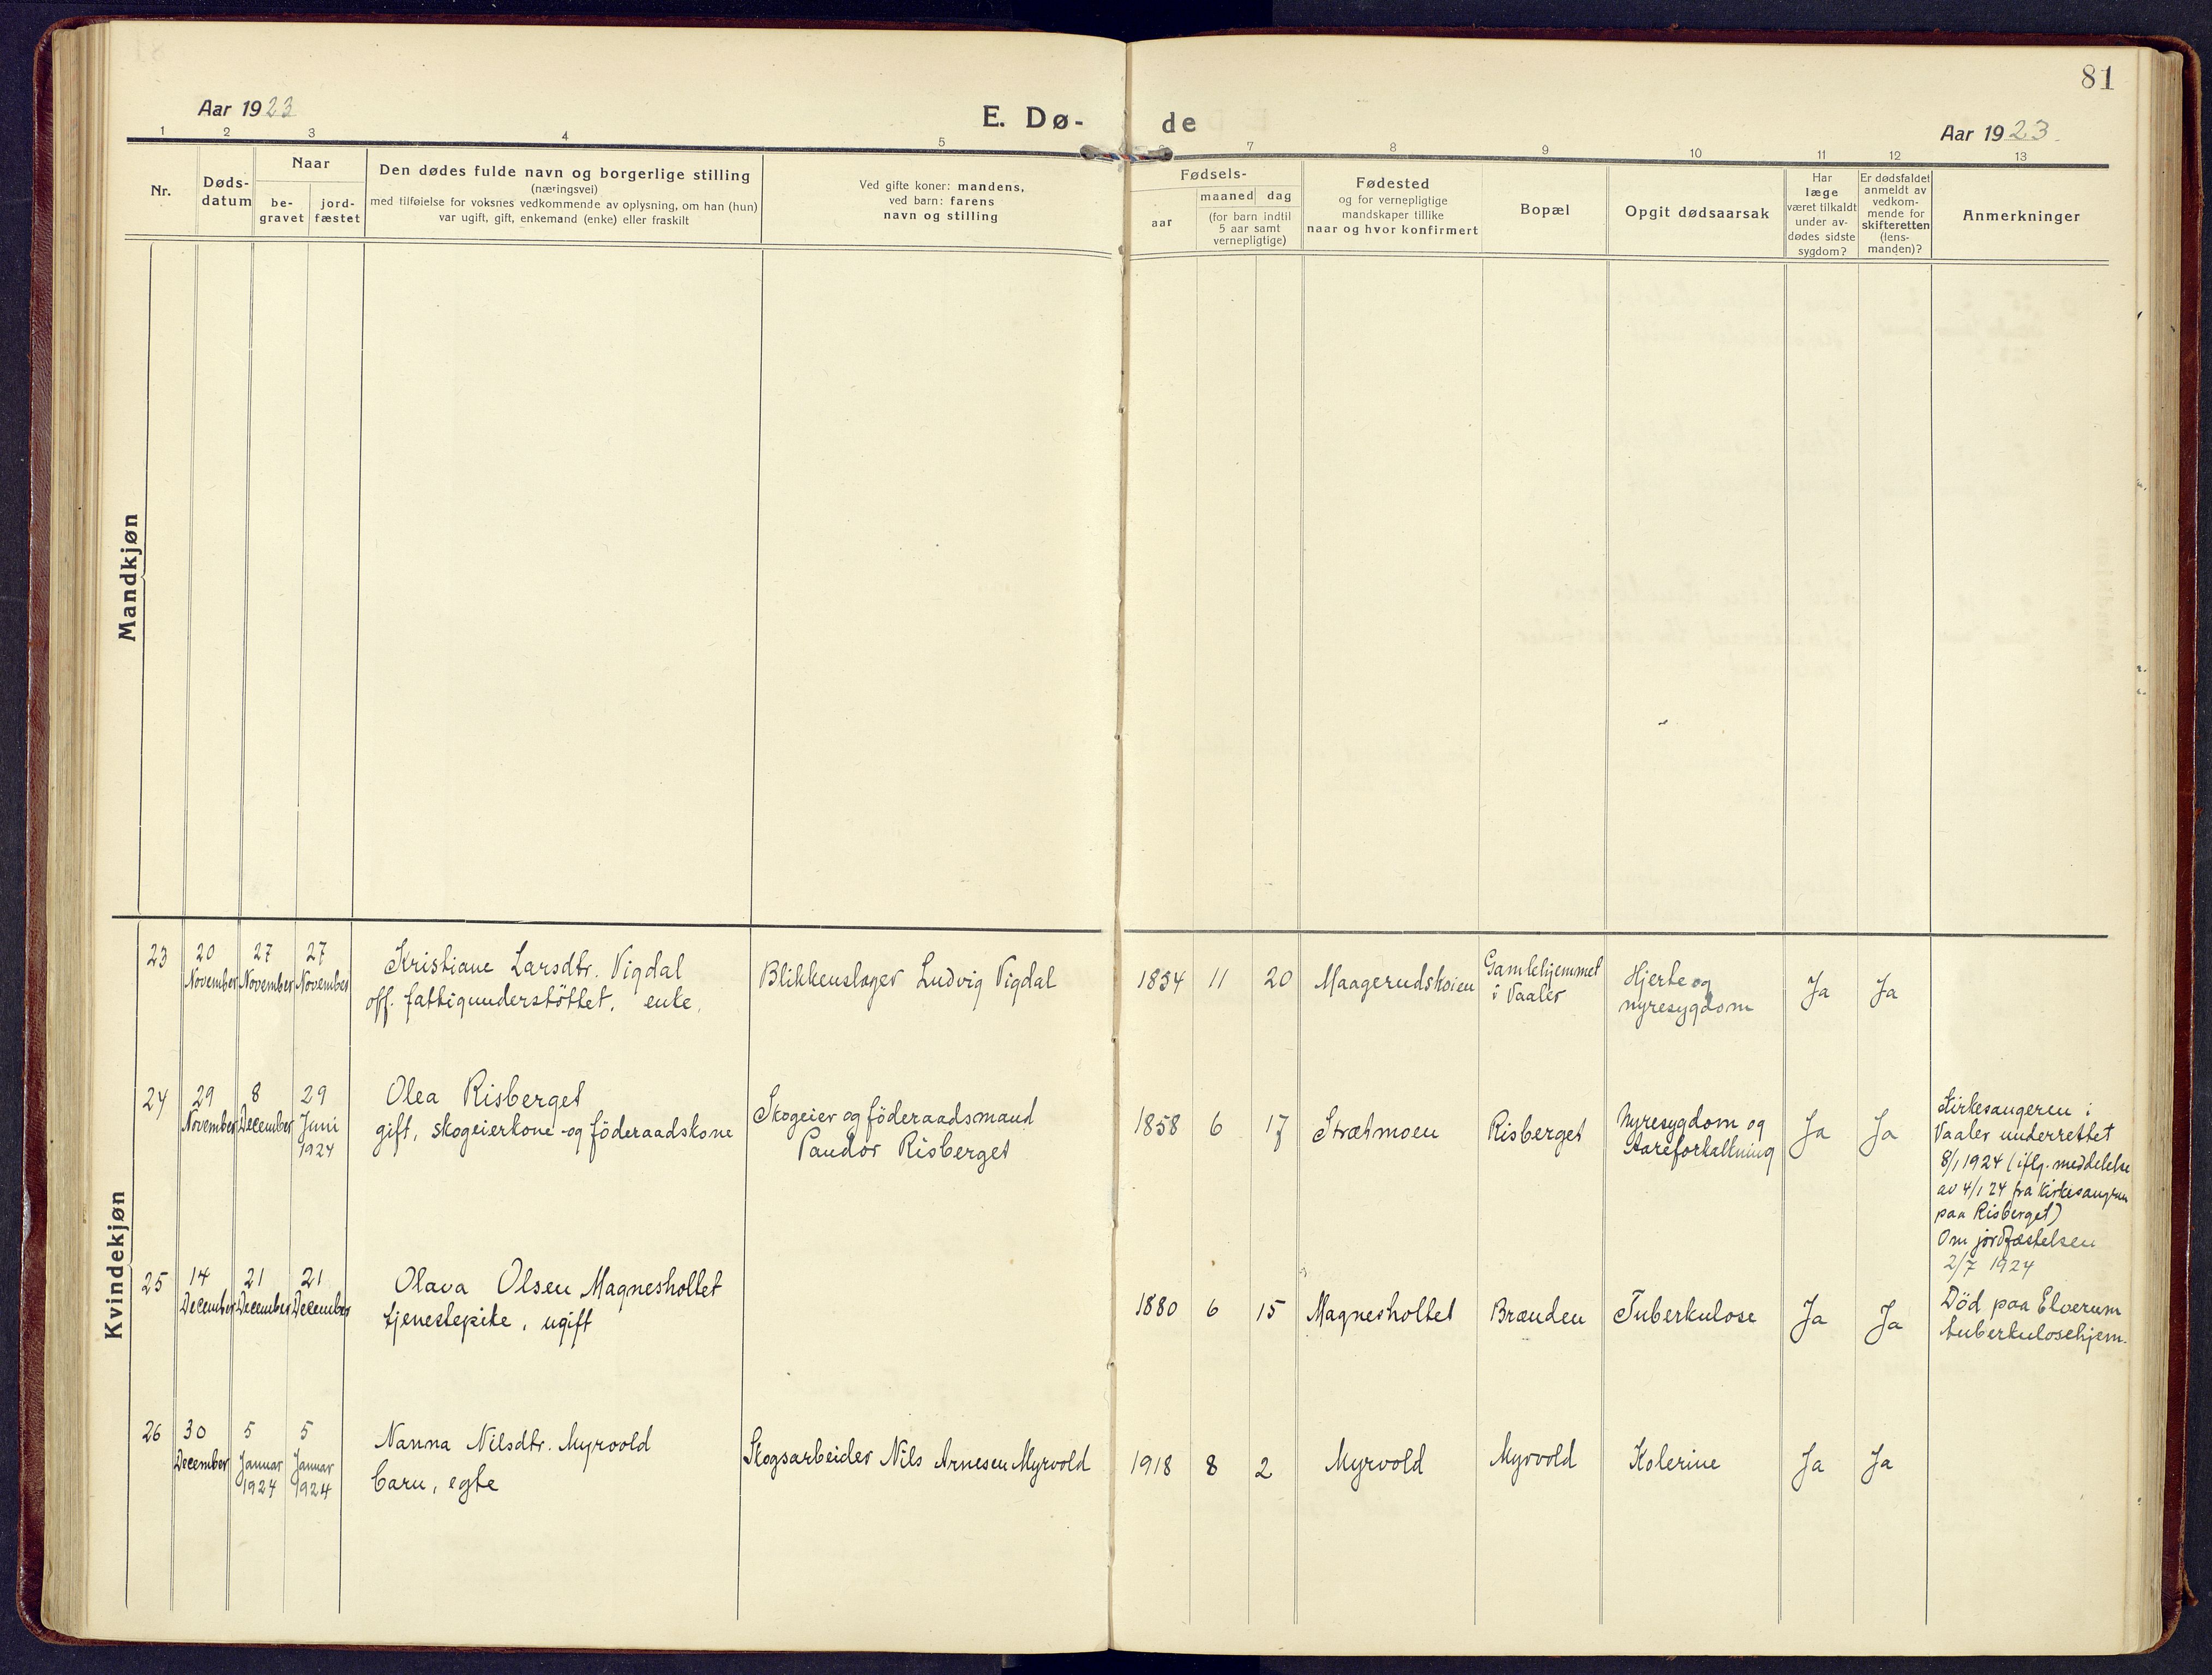 81
Aar 1923
E. Dø-
de
Aar 1923.
1 2 3 4 5 7 8 9 10 11 12 13
Nr.
Døds-
datum
Naar
be-
gravet
jord-
fæstet
Den dødes fulde navn og borgerlige stilling
(næringsvei)
med tilføielse for voksnes vedkommende av oplysning, om han (hun)
var ugift, gift, enkemand (enke) eller fraskilt
Ved gifte koner: mandens,
ved barn: farens
navn og stilling
Fødsels-
aar
maaned dag
(for barn indtil
5 aar samt
vernepligtige)
Fødested
og for vernepligtige
mandskaper tillike
naar og hvor konfirmert
Bopæl
Opgit dødsaarsak
Har
læge
været tilkaldt
under av-
dødes sidste
sygdom?
Er dødsfaldet
anmeldt av
vedkom-
mende for
skifteretten
(lens-
manden)?
Anmerkninger
Mandkjøn
Kvindekjøn
23
20
November
27
November
27
November
Kristiane Larsdtr. Vigdal
off. fattigunderstöttet, enke,
Blikkenslager Ludvig Vigdal
1854 11 20
Maagerudskoien
Gamlehjemmet
i Vaaler
Hjerte og
nyresygdom
Ja
Ja
24
29
November
8
December
29
Juni
1924
Olea Risberget
gift, skogeierkone og föderaadskone
Skogeier og föderaadsmand
Pandor Risberget
1858 6 17
Strætmoen
Risberget
Nyresygdom og
aareforkaltning
Ja
Ja
Kirkesangeren i
Vaaler underrettet
8/1 1924 (iflg. meddelelse
av 4/1 24 fra kirkesangeren
paa Risberget)
Om jordfæstelsen
2/7 1924
25
14
December
21
December
21
December
Olava Olsen Magnesholtet
tjenestepike, ugift
1880 6 15
Magnesholtet
Brænden
Tuberkulose
Ja
Ja
Död paa Elverum
tuberkulosehjem.
26
30
December
5
Januar
1924
5
Januar
1924
Nanna Nilsdtr. Myrvold
barn, egte
Skogsarbeider Nils Arnesen Myrvold
1918 8 2
Myrvold
Myrvold
Kolerine
Ja
Ja